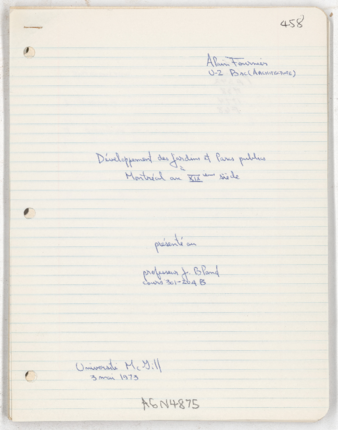 458
Alain Fournier
U-2 B.Sc (Architecture)
Développement des Jardins & Parcs publics
à
Montréal au XIX ième siècle
présenté au
professeur J. Bland
cours 301-204 B
Université McGill
3 mai 1973
AGN4875